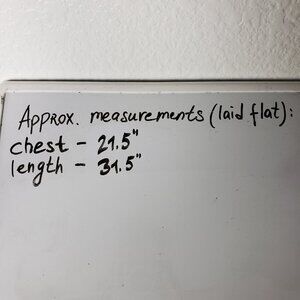 Approx. measurements (laid flat):
chest - 21.5"
length - 31.5"